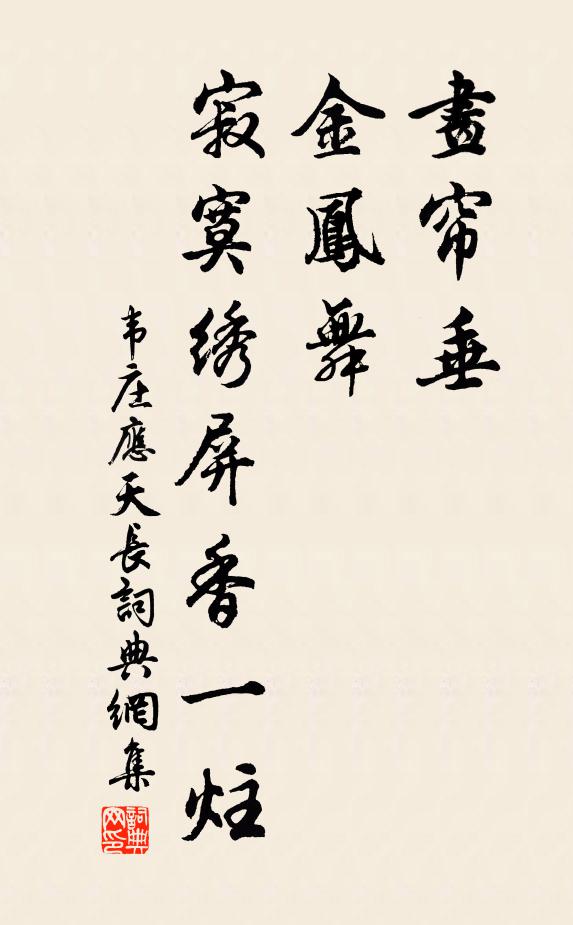 畫帘垂
金鳳舞
寂寞绣屏香一炷
韦庄應天長詞典網集
詞典网印